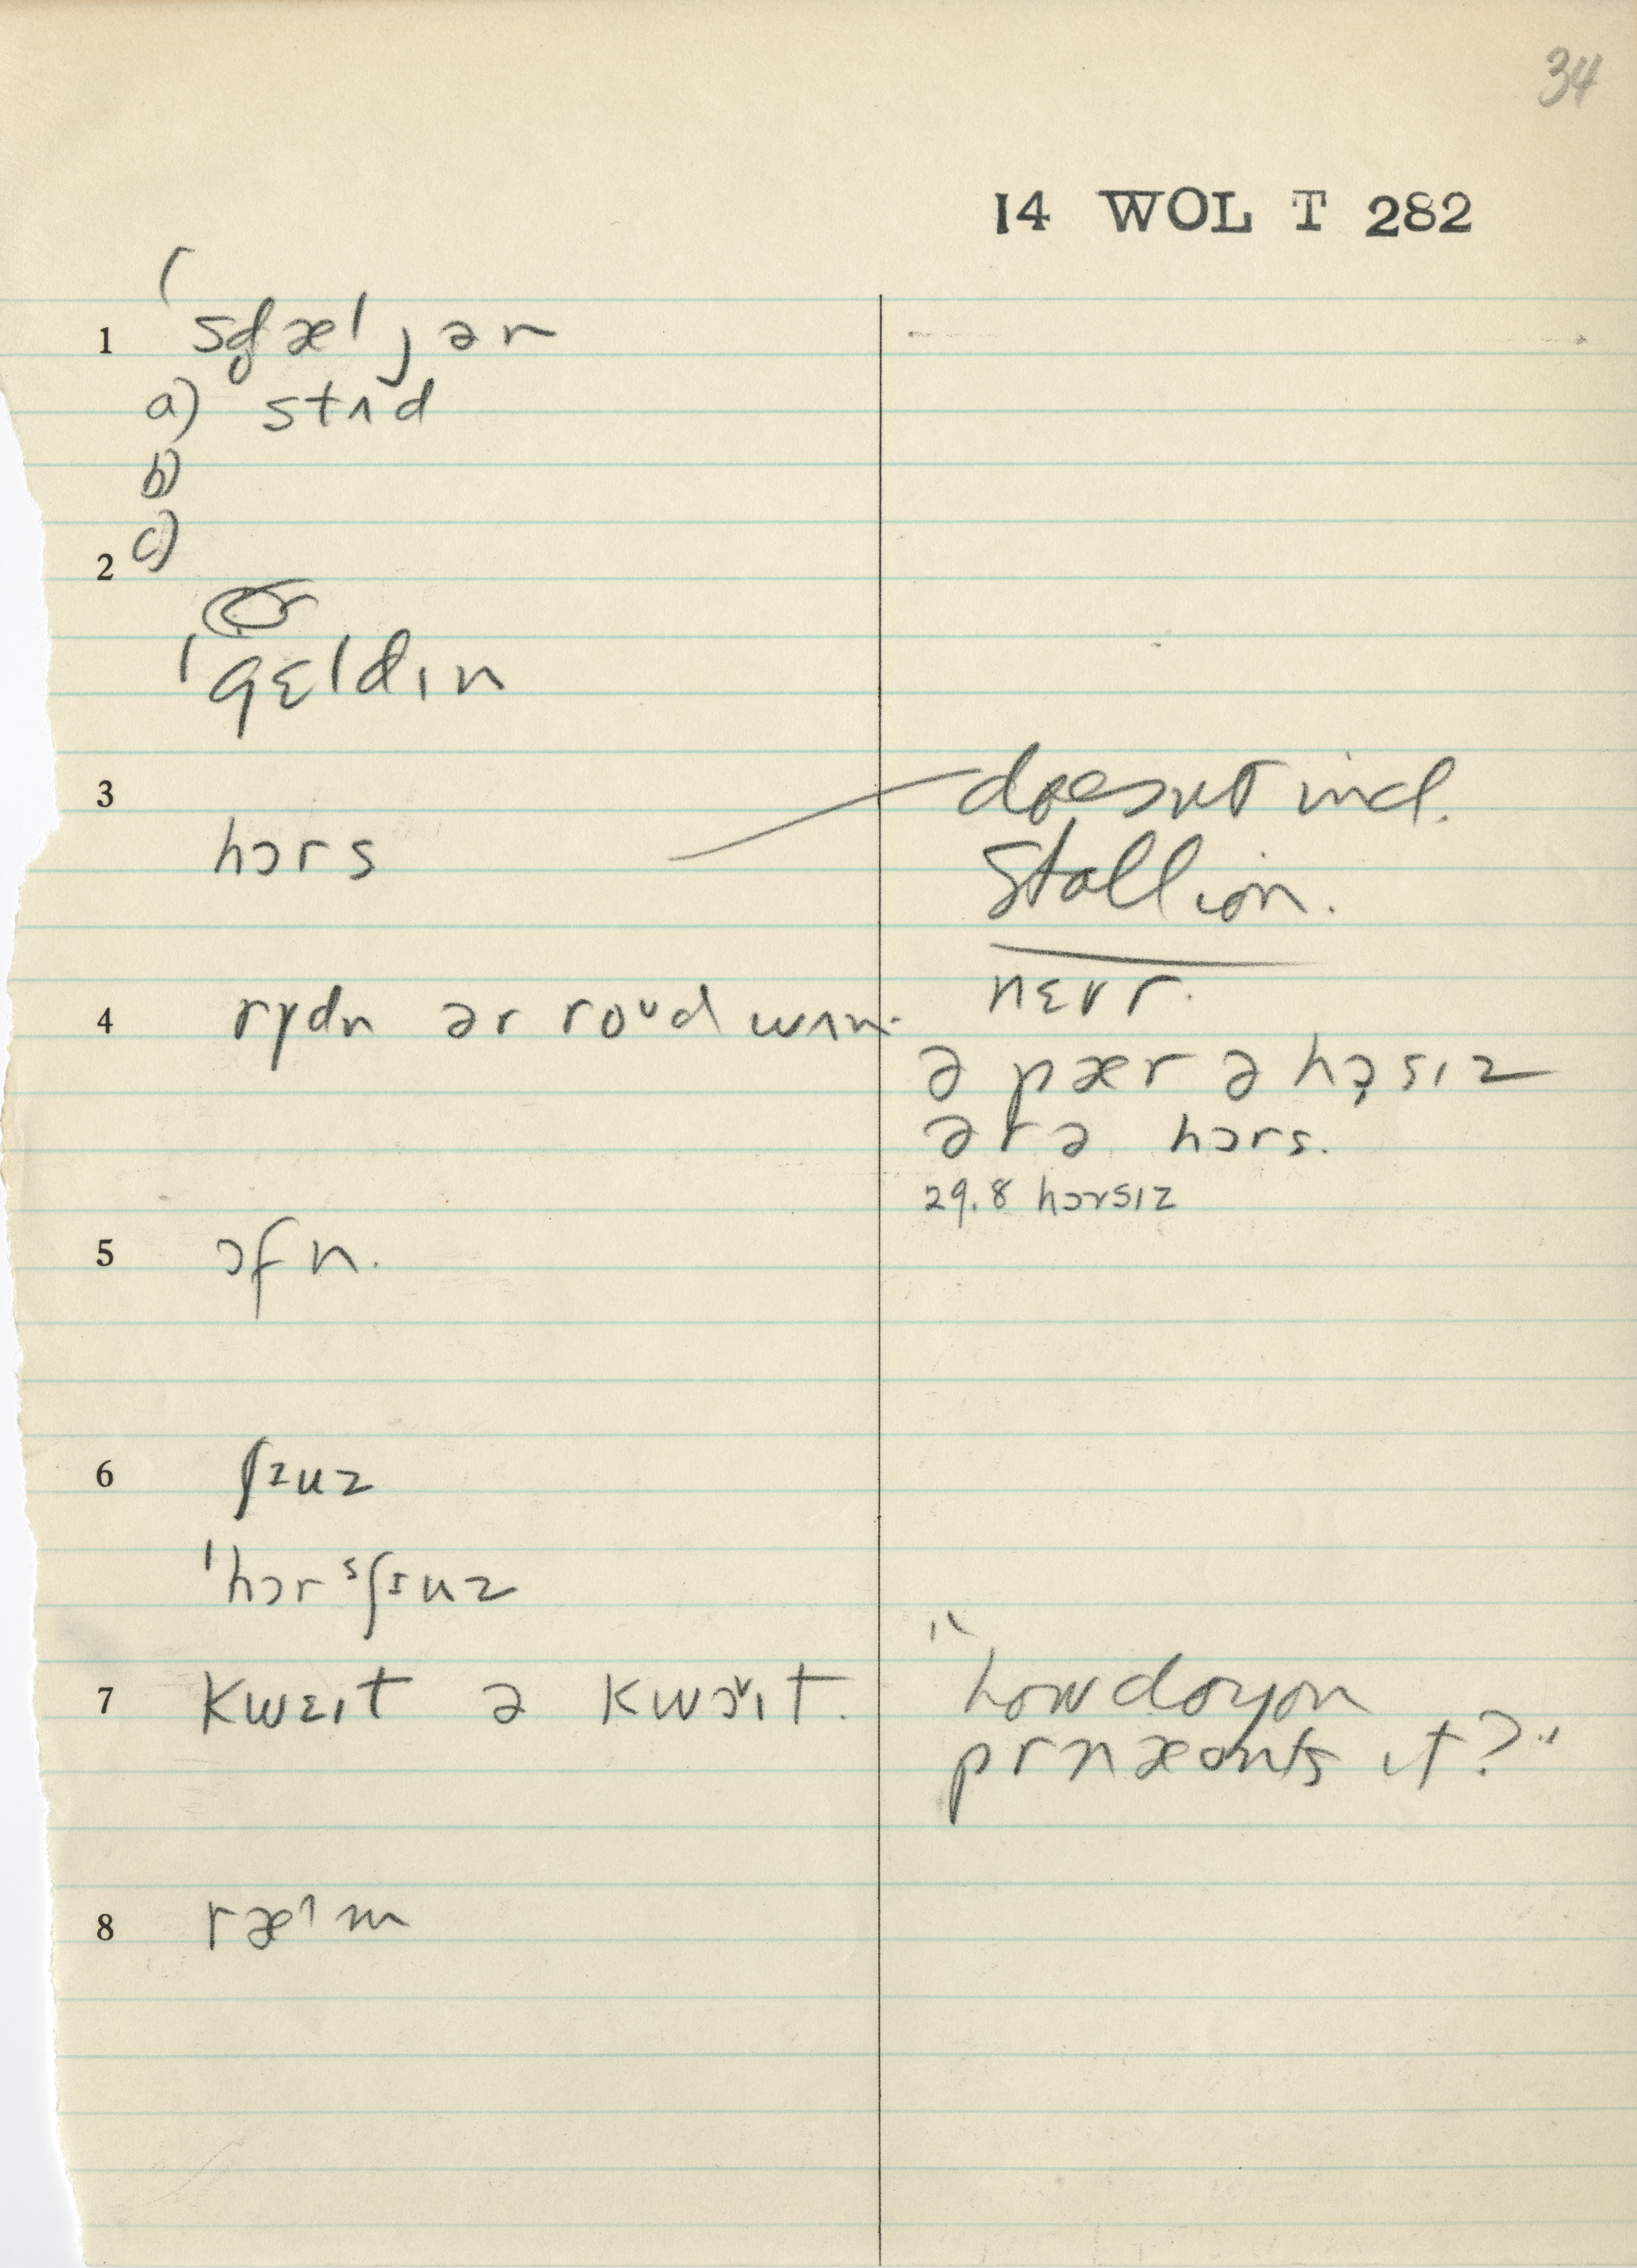 34
14 WOL T 282
1 ˈsd̥æljən
a) stʌd
b)
c)
2
ˈgɛldɪn
3
hɔrs
doesnt incl.
Stallion.
nɛvr.
4 rydn ər roᵘd wʌn.
ə pær ə hɔ̣sɪz
ər ə hɔrs.
29.8 hɔrsɪz
5 ɔfn.
6 ʃɪuz
ˈhɔrˢʃɪuz
7 kwɛɪt ə kwɔ̌ɪt.
"how do you
prnæonts it?"
8 ræˈm